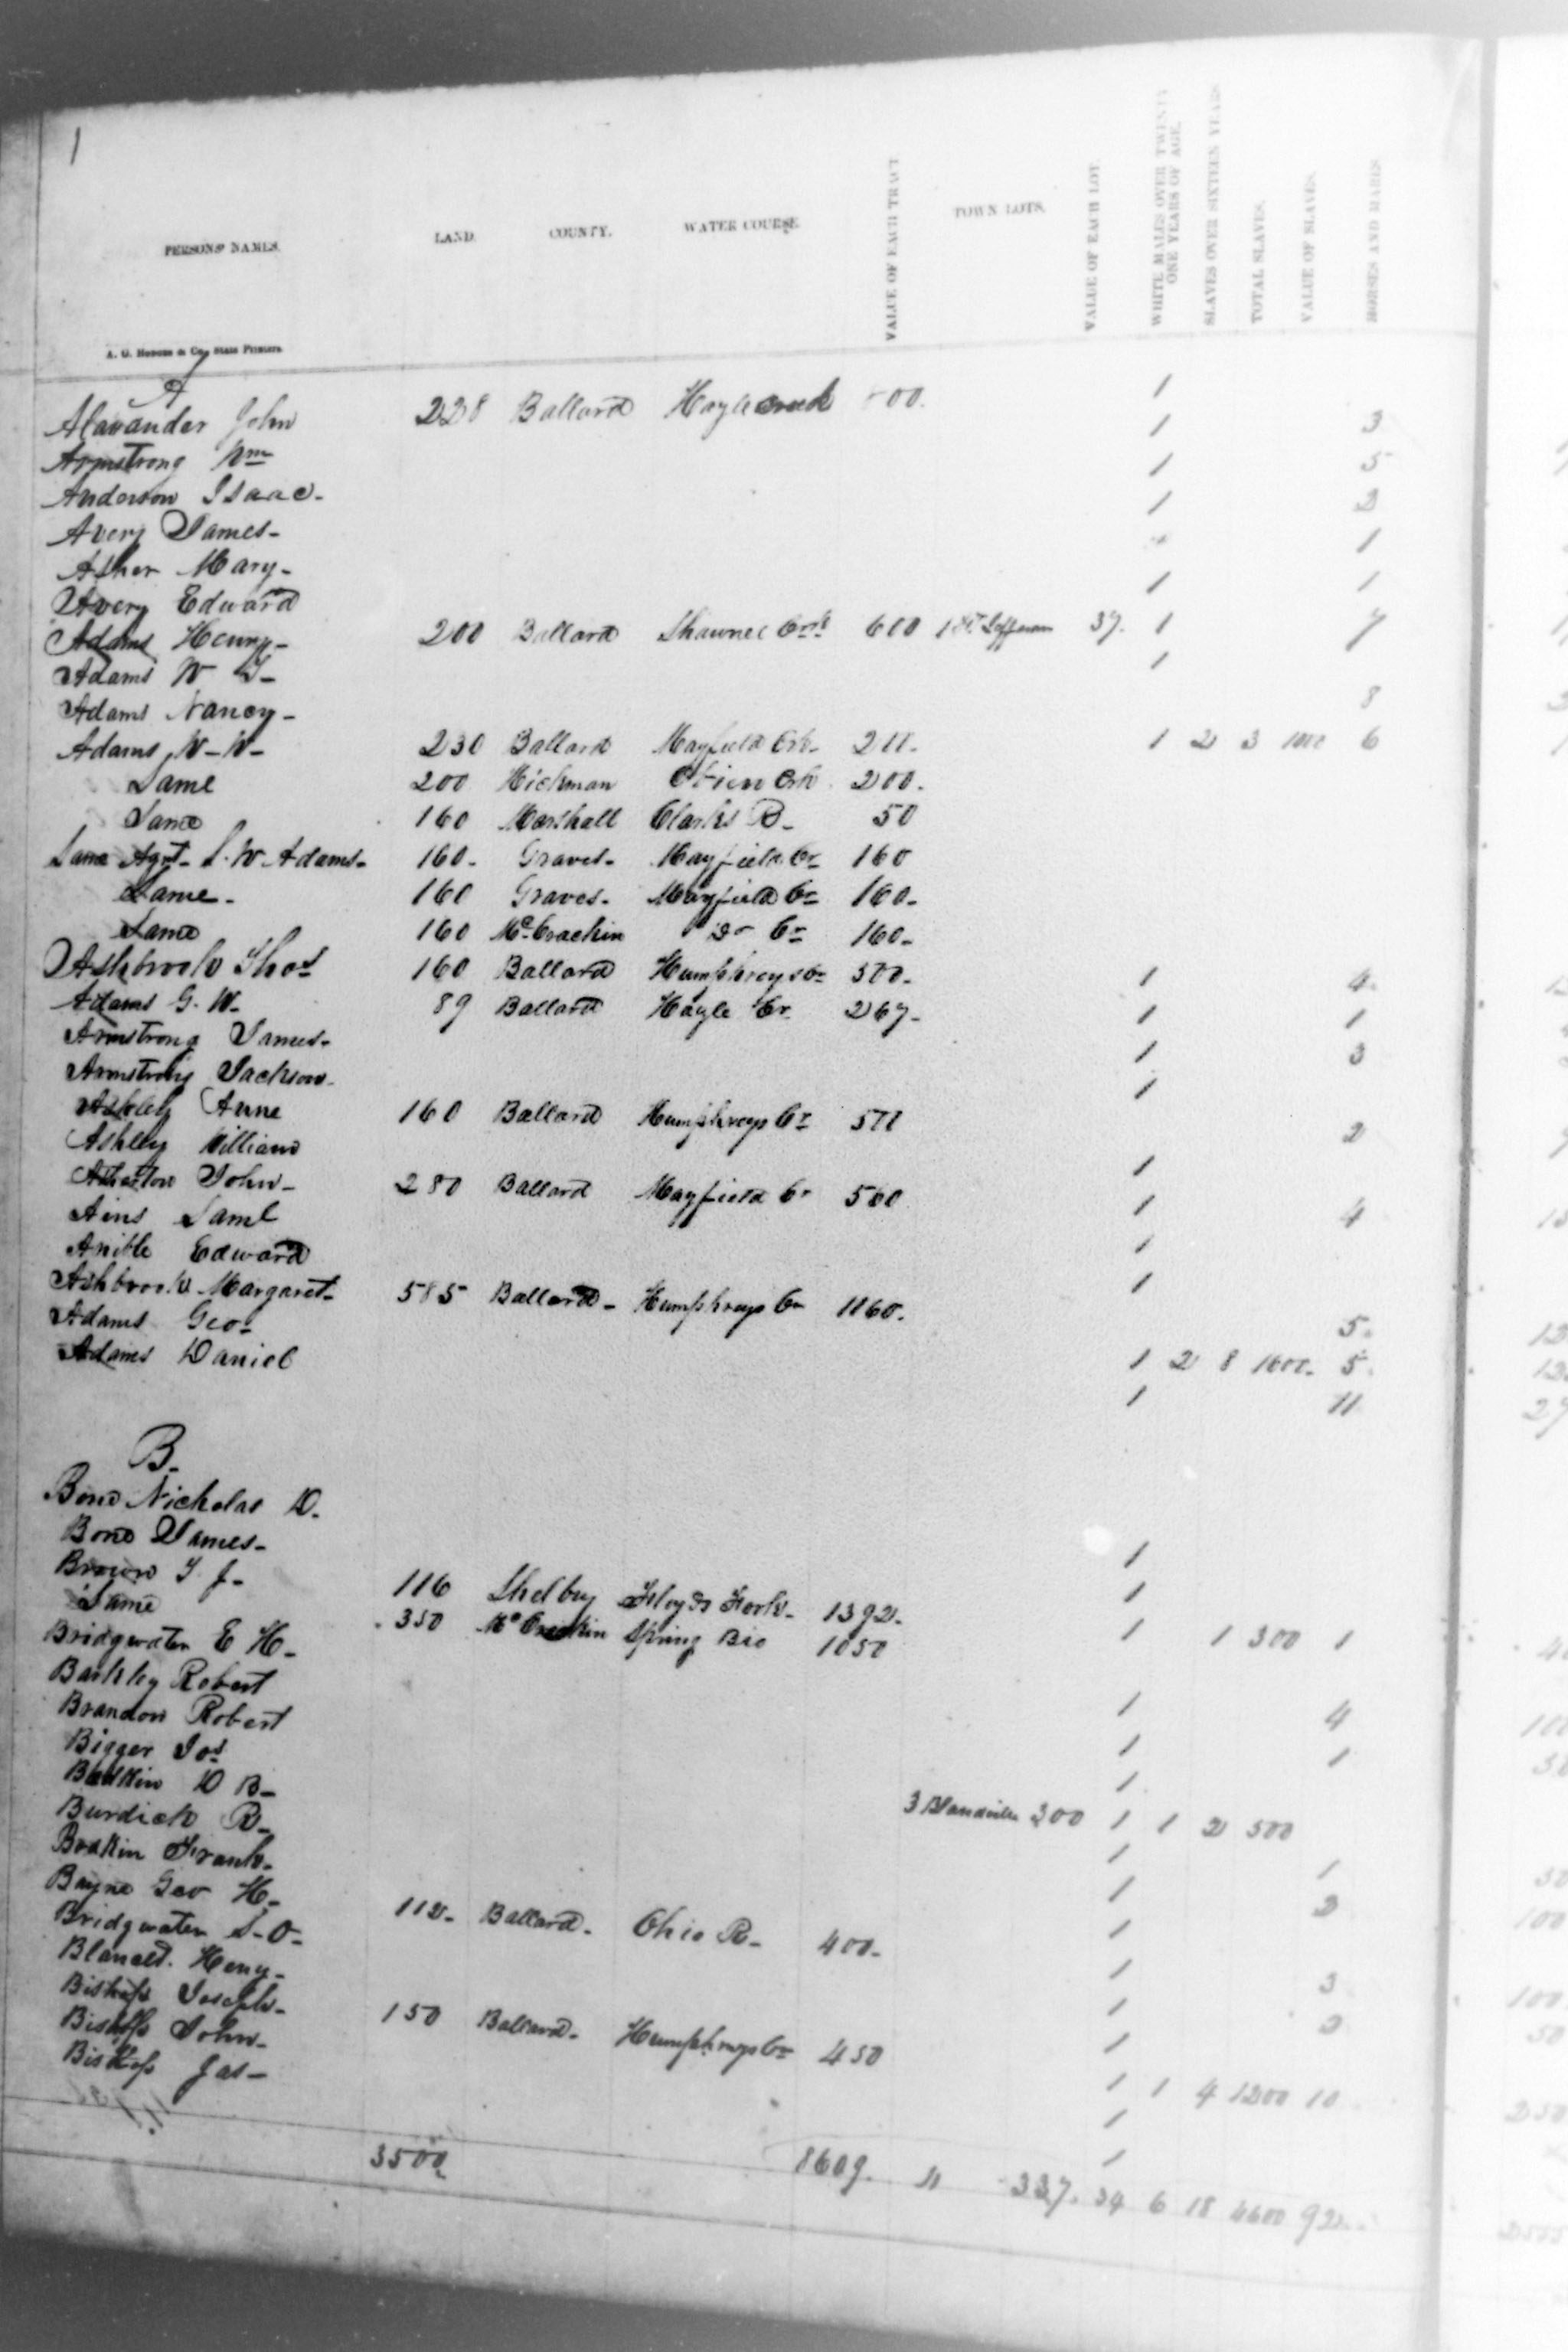 1
PERSONS' NAMES. LAND. COUNTY. WATER COURSE. VALUE OF EACH TRACT. TOWN LOTS. VALUE OF EACH LOT. WHITE MALES OVER TWENTY ONE YEARS OF AGE. SLAVES OVER SIXTEEN YEARS TOTAL SLAVES. VALUE OF SLAVES. HORSES AND MARES
A. G. Hodges & Co., State Printers.
A
Alaxander John 228 Ballard Hayle Creek 00. 1
Armstrong Wm 1 3
Anderson Isaac- 1 5
Avery James- 1 2
Asher Mary- 1
Avery Edward 1 1
Adams Henry- 200 Ballard Shawnee Crk 600 37. 1 7
Adams W T- 1
Adams Nancy- 8
Adams, W-W- 230 Ballard Mayfield Crk- 1 2 3 1000 6
Same 200 Hickman Obion Crk. 200.
Same 160 Marshall Clarks R- 50
Same Agnt- S. W. Adams- 160- Graves- Mayfield Cr 160
Same- 160 Graves- Mayfield Cr 160-
Same 160 McCrackin Do Cr 160-
Ashbrook Thos 160 Ballard Humphreys Cr 500- 1 4.
Adams G. W- 89 Ballard Hayle Cr. 267- 1 1
Armstrong James- 1 3
Armstrong Jackson- 1
Ashley Anne 160 Ballard Humphreys Cr 500 2
Ashley William 1
Asherton John- 280 Ballard Mayfield Cr 560 1 4
Ains Saml 1
Anible Edward 1
Ashbrook Margaret- 585 Ballard- Humphreys Cr 1160. 5.
Adams Geo- 1 2 8 1600- 5.
Adams Daniel 1 11
B.
Bond Nicholas D. 1
Bond James- 1
Brown T J- 116 Shelby Floyds Fork- 1392- 1 1 300 1
Same 350 McCrackin Spring Bio 1050
Bridgwater E H- 1 4
Barkley Robert 1 1
Brandon Robert 1
Bigger Jos 3 Blandville 300 1 1 2 500
D B- 1 1
Burdick R- 1 2
Brakin Frank- 1
Bayne Geo H- 112- Ballard- Ohio R- 400- 1 3
Bridgwater S-O- 1 2
Heny- 1
Bishop Joseph- 150 Ballard- Humphreys Cr 450 1 1 4 1200 10
Bishop John- 1
Bishop Jas- 1
3500 8609. 11 337. 34 6 18 4600 92